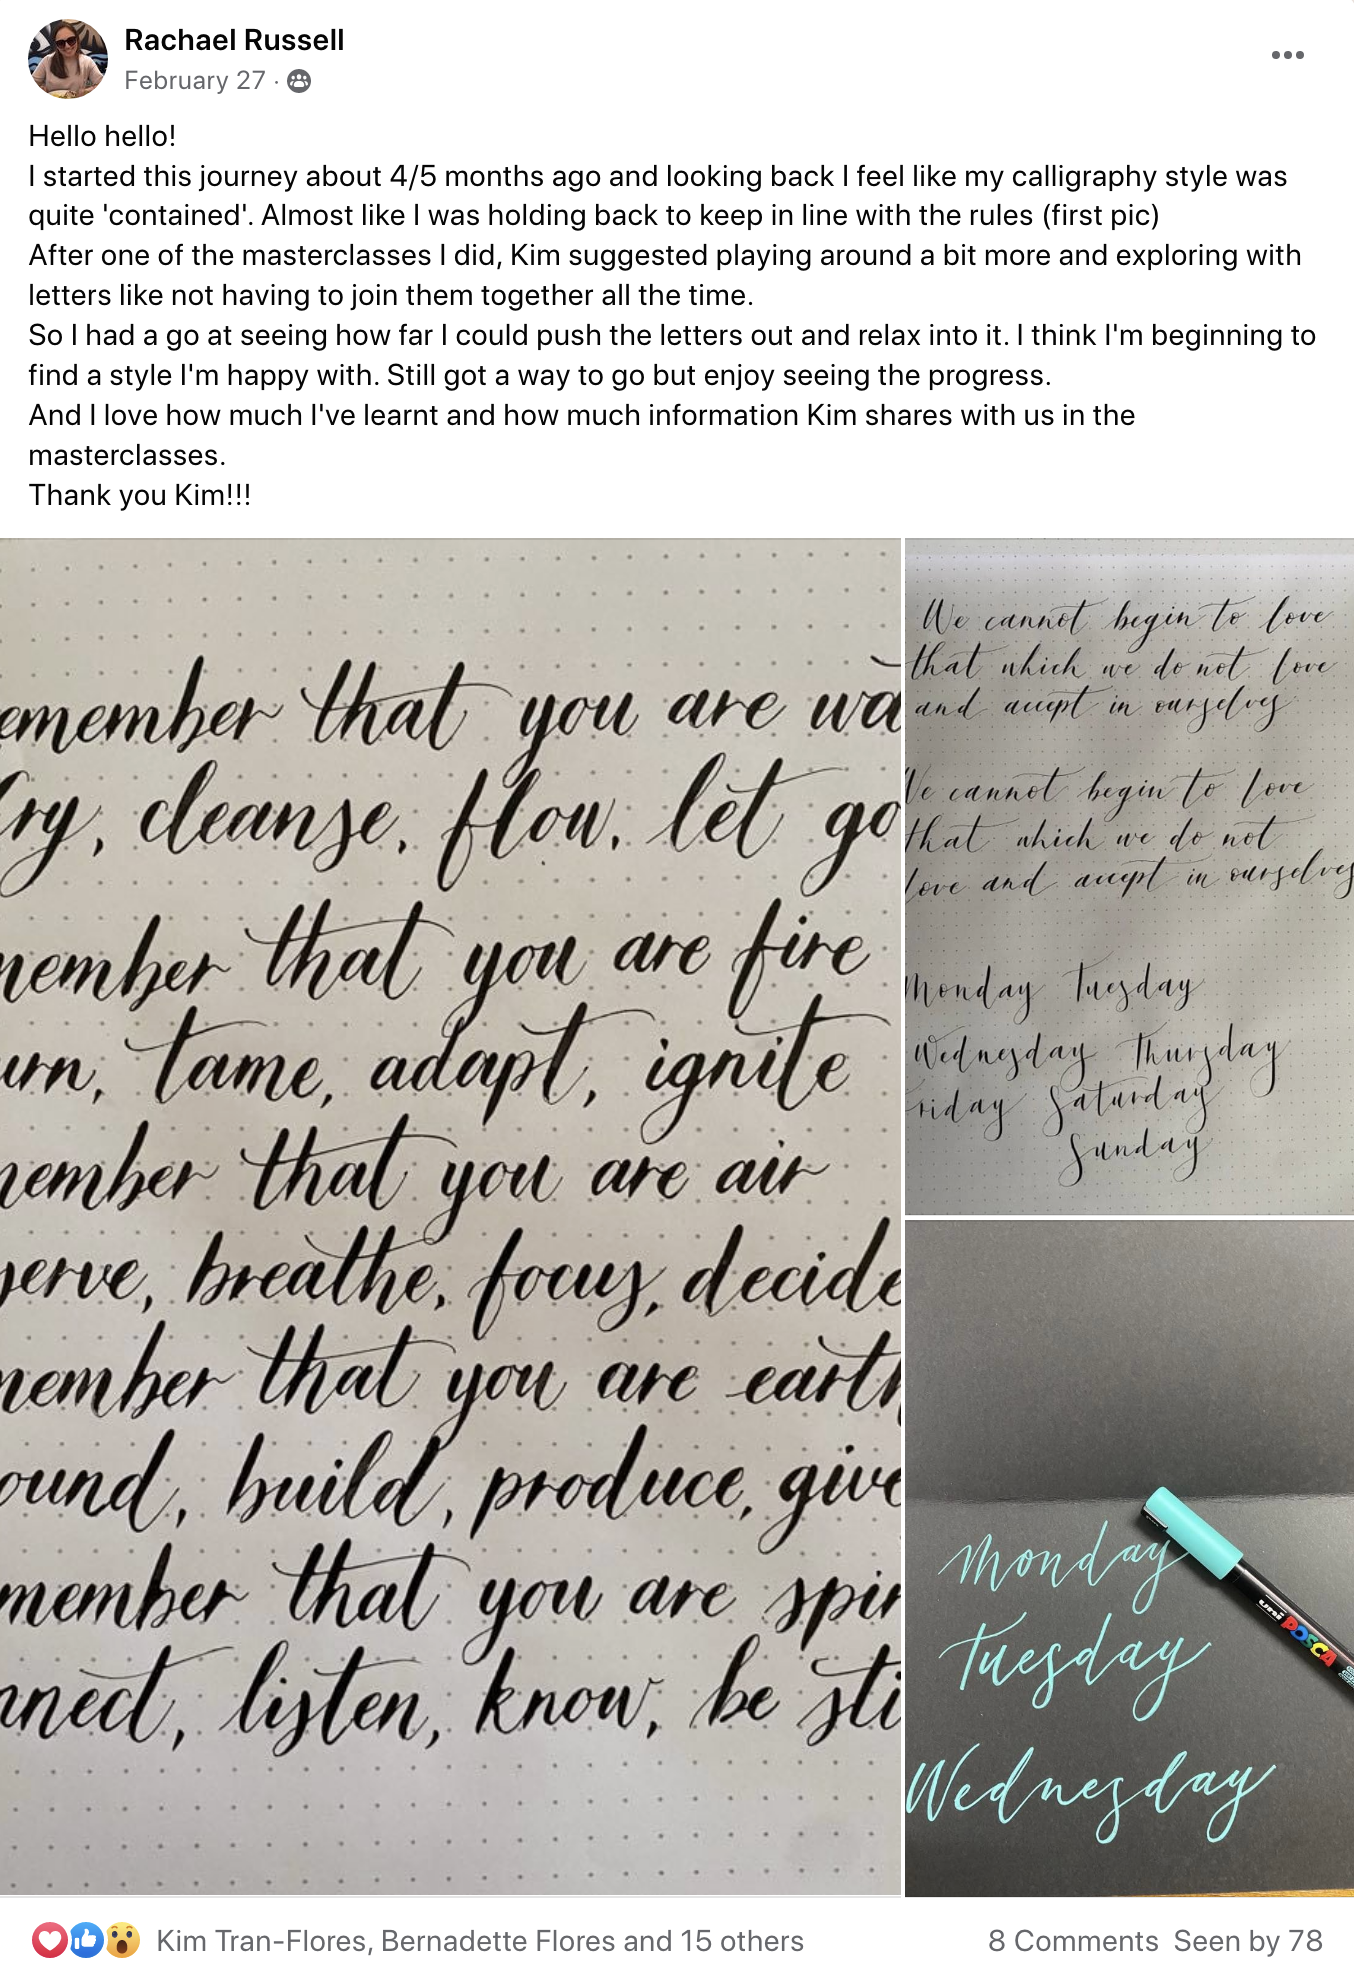 Rachael Russell
February 27 ·
Hello hello!
I started this journey about 4/5 months ago and looking back I feel like my calligraphy style was
quite 'contained'. Almost like I was holding back to keep in line with the rules (first pic)
After one of the masterclasses I did, Kim suggested playing around a bit more and exploring with
letters like not having to join them together all the time.
So I had a go at seeing how far I could push the letters out and relax into it. I think I'm beginning to
find a style I'm happy with. Still got a way to go but enjoy seeing the progress.
And I love how much I've learnt and how much information Kim shares with us in the
masterclasses.
Thank you Kim!!!
emember that you are wa
ry, cleanse, flow, let go
member that you are fire
urn, tame, adapt, ignite
member that you are air
serve, breathe, focus, decide
member that you are earth
ound, build, produce, give
member that you are spir
nnect, listen, know, be sti
We cannot begin to love
that which we do not love
and accept in ourselves
We cannot begin to love
that which we do not
love and accept in ourselves
Monday Tuesday
Wednesday Thursday
riday Saturday
Sunday
Monday
Tuesday
Wednesday
uni POSCA
Kim Tran-Flores, Bernadette Flores and 15 others
8 Comments Seen by 78